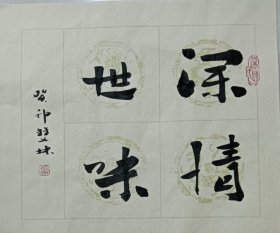 深情
世味
癸卯